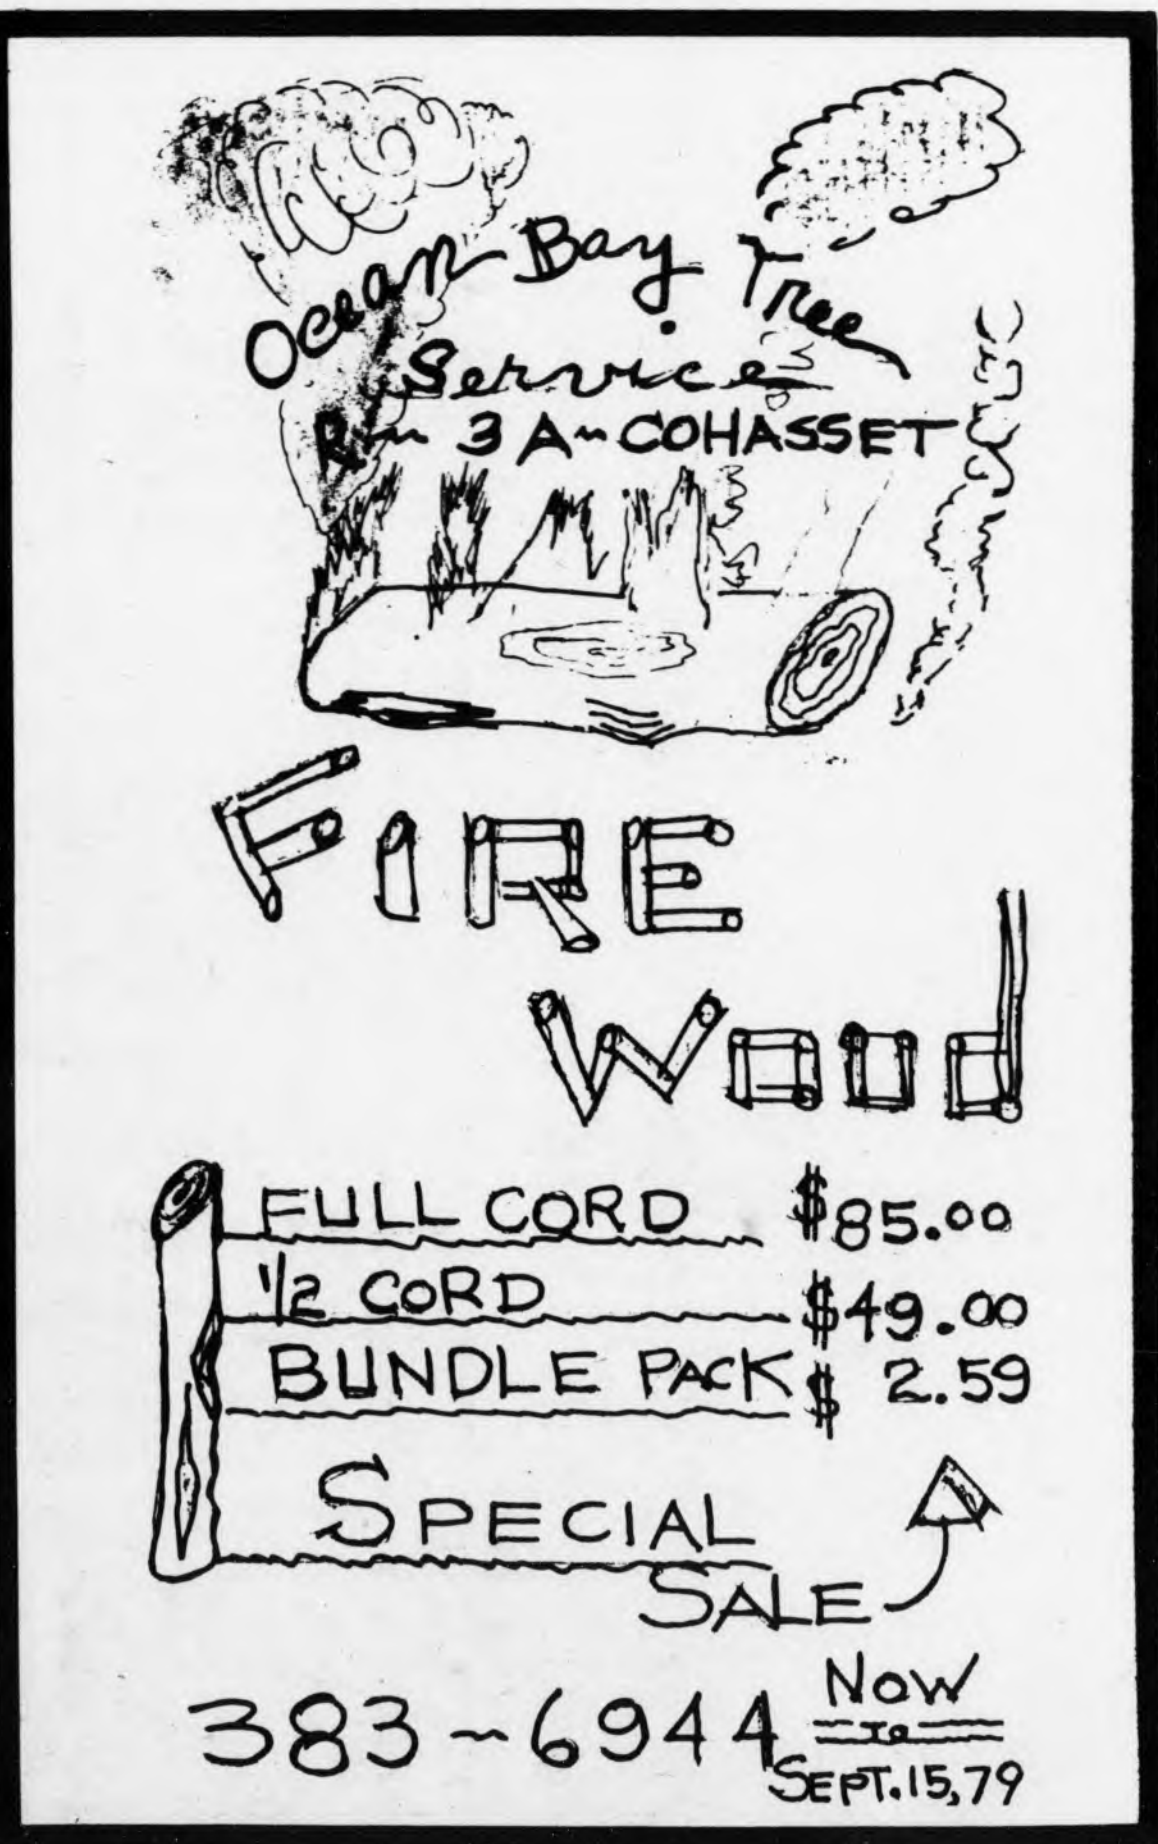 Ocean Bay Tree
Service
R~ 3A~ COHASSET
FIRE
Wood
FULL CORD $85.00
1/2 CORD $49.00
BUNDLE PACK $ 2.59
SPECIAL
SALE
383~6944
NOW
TO
SEPT.15,79